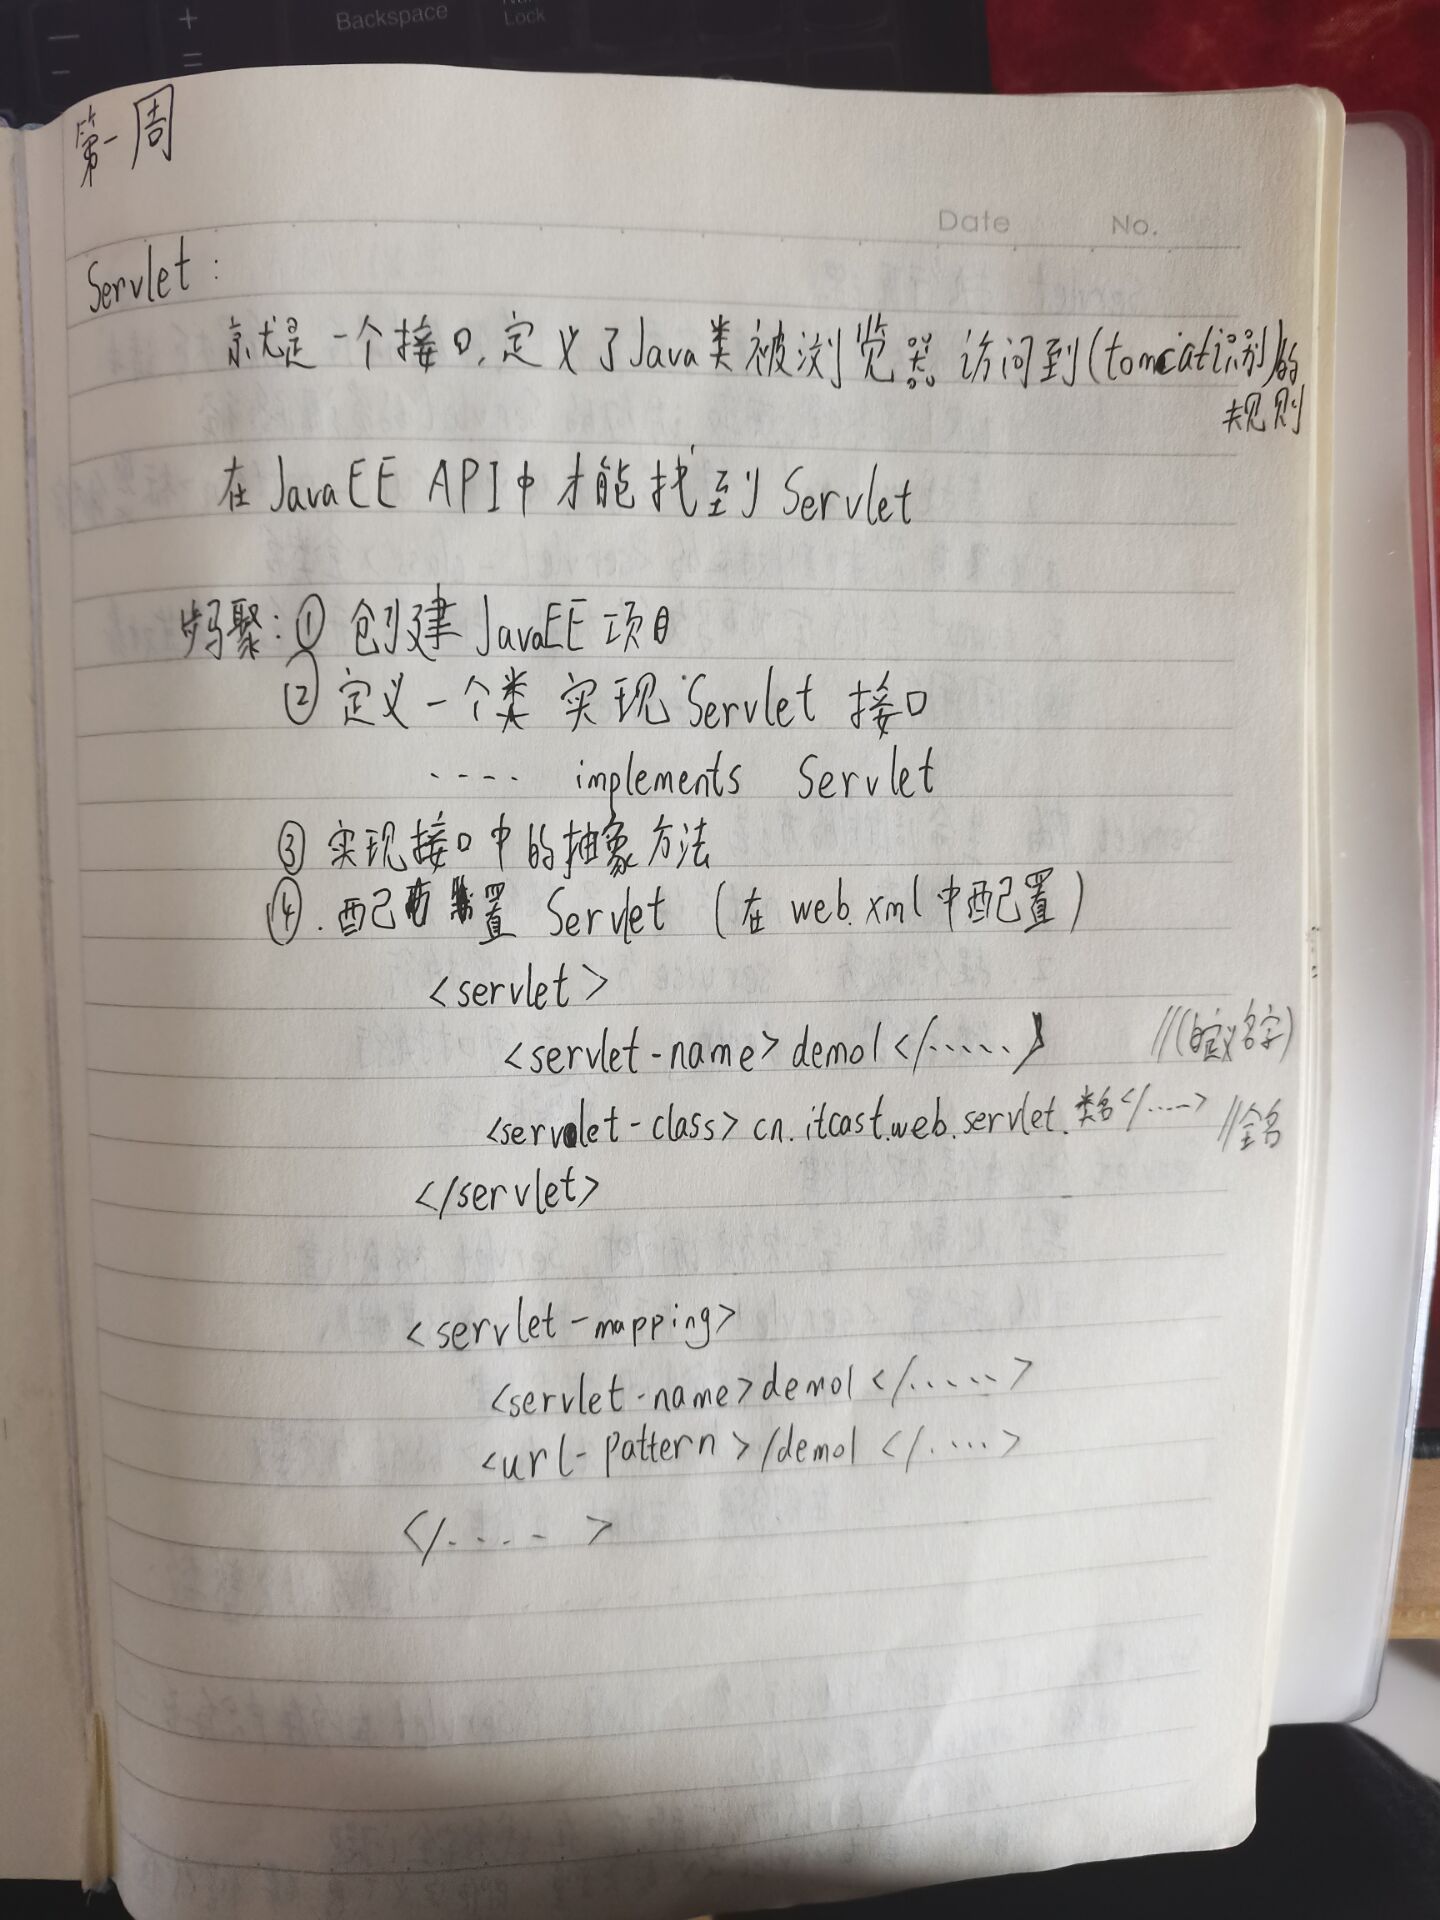 Backspace
Lock
第一周
Date No.
Servlet:
就是一个接口,定义了Java类被浏览器访问到(tomcat识别)的
规则
在JavaEE API中才能找到Servlet
步骤:① 创建JavaEE项目
② 定义一个类 实现Servlet 接口
.... implements Servlet
③ 实现接口中的抽象方法
④.配置 Servlet (在web.xml中配置)
<servlet>
<servlet-name>demo1</.....> //(自定义名字)
<servlet-class>cn.itcast.web.servlet.类名</....> //全名
</servlet>
<servlet-mapping>
<servlet-name>demo1</.....>
<url-pattern>/demo1</....>
</.....>